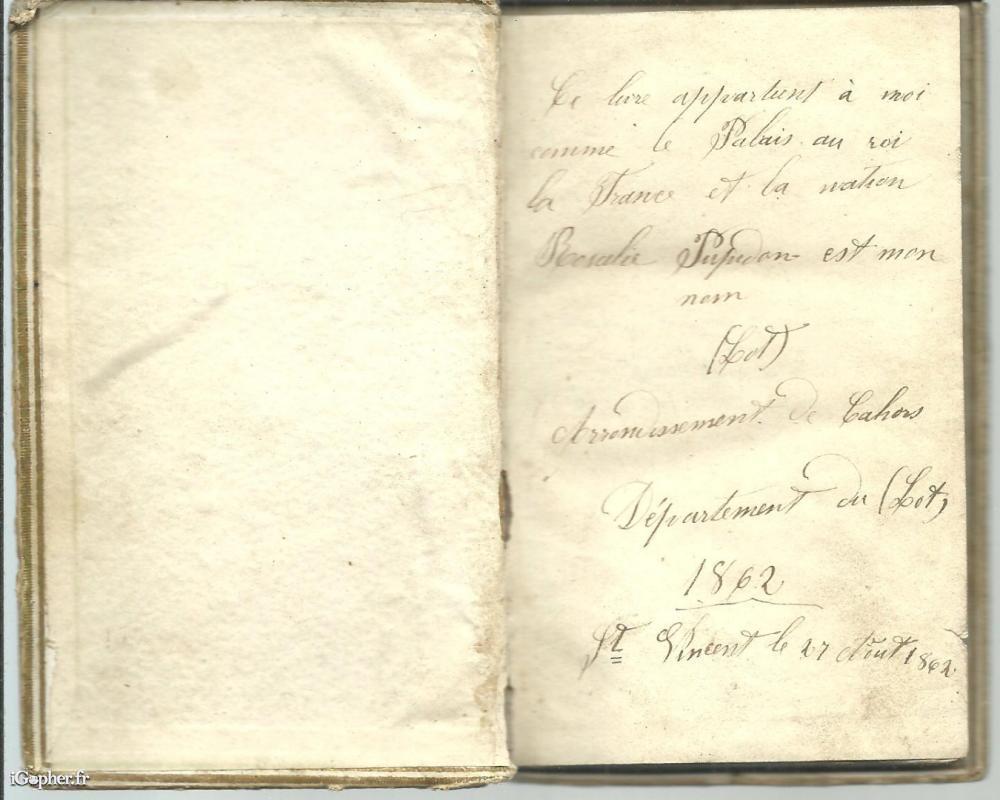 Ce livre appartient à moi
comme le Palais au roi
la France et la nation
Rosalie est mon
nom
(Lot)
Arrondissement de Cahors
Département du (Lot)
1862
St Vincent le 27 Août 1862
iGopher.fr